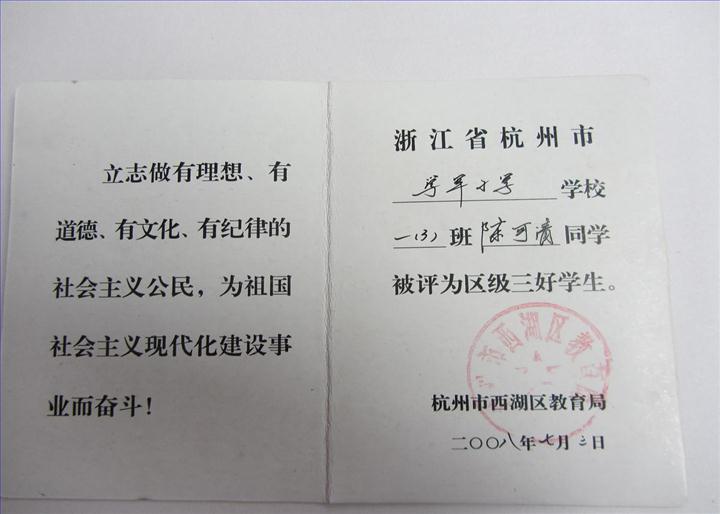 立志做有理想、有
道德、有文化、有纪律的
社会主义公民，为祖国
社会主义现代化建设事
业而奋斗！
浙江省杭州市
学军小学 学校
一(3) 班 陈可 同学
被评为区级三好学生。
市西湖区教育
杭州市西湖区教育局
二〇〇八年七月 日